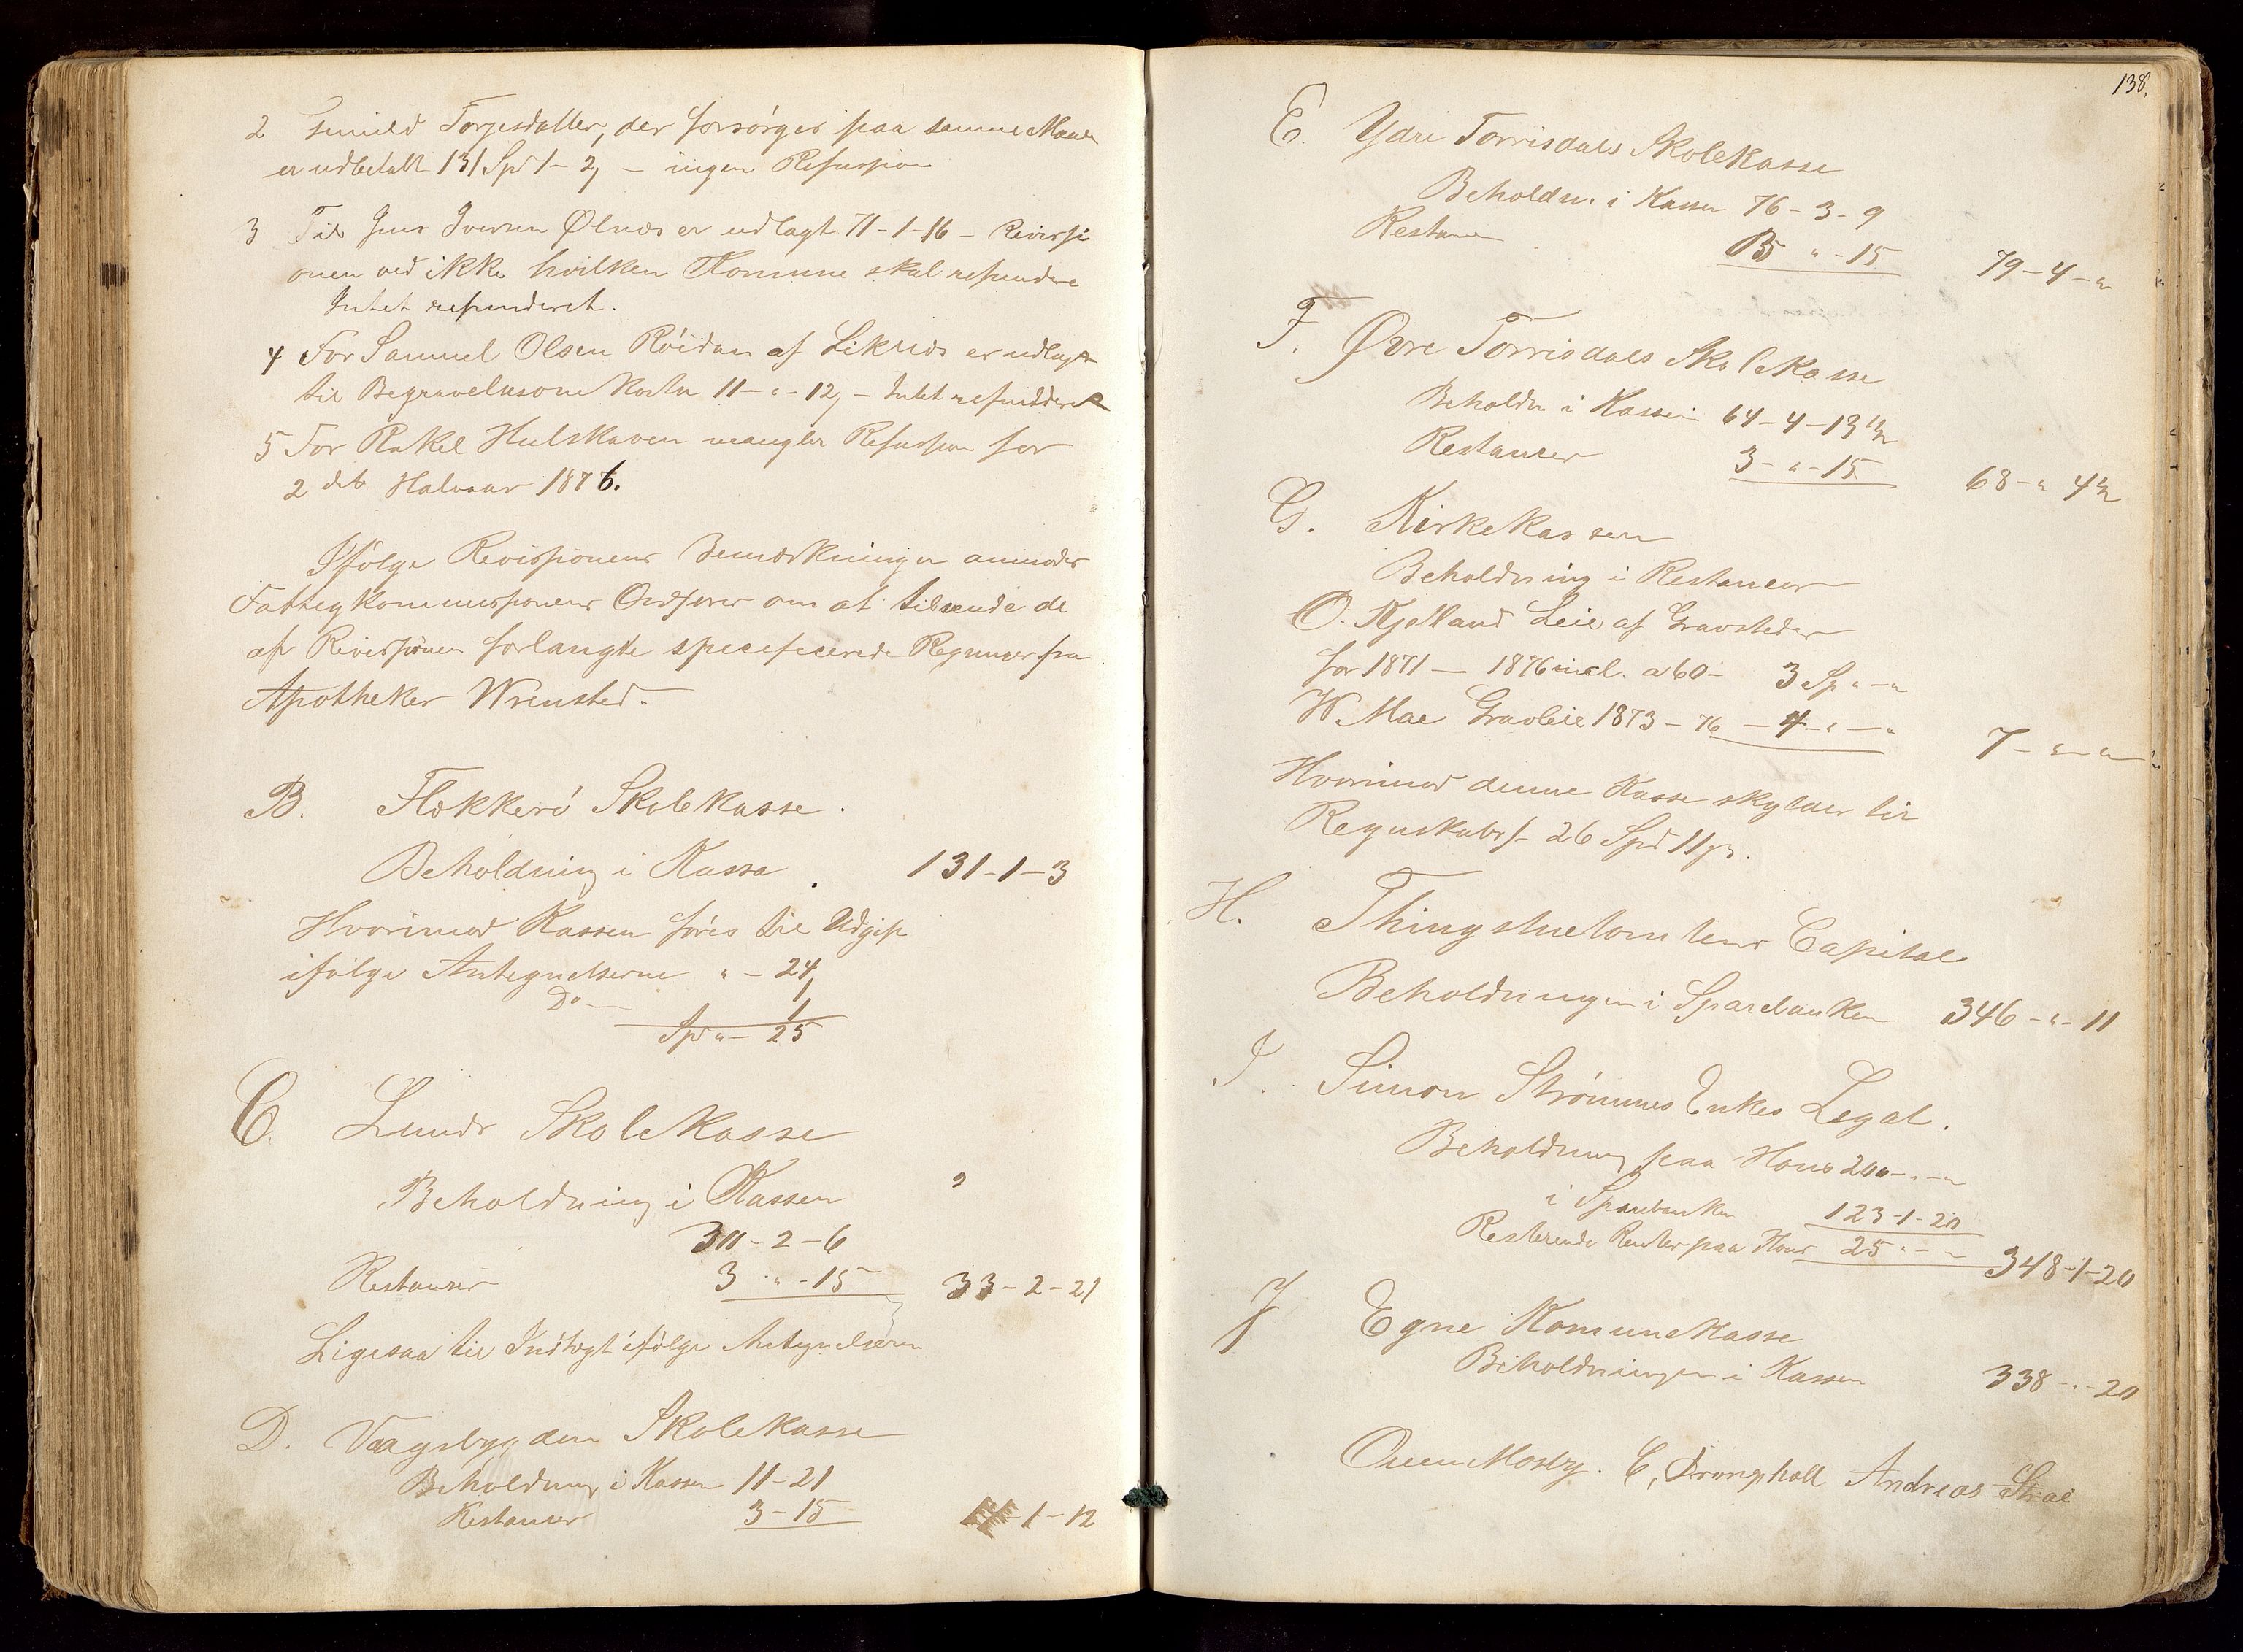 2 Gunild Torjesdatter, der forsørges paa samme Maade
er udbetalt 131 Spd 1 - 2, - ingen Refusion
3 Til Jens Iversen Ølnæs er udlagt 71-1-16 - Revisi
onen ved ikke hvilken Komune skal refundere
Intet refunderet.
4 For Samuel Olsen Røidan af Liknes er udlagt
til Begravelsesomkostn 11-"-12, - Intet refundderet
5 For Rakel Hulskaven mangler Refusion for
2 det Halvaar 1876.
Ifølge Revisionens Bemærkninger anmodes
Fattigkommissionens Ordfører om at tilsende de
af Revisionen forlangte specificerede Regninger fra
Apotheker Wrensted.
B. Flekkerø Skolekasse.
Beholdning i Kassa . 131-1-3
Hvorimod Kassen føres til Udgift
ifølge Antegnelserne " - 24
Do — 1
Spd " - 25
C. Lunds Skolekasse
Beholdning i Kassen
30-2-6
Restancer 3-"-15 33-2-21
Ligesaa til Indtægt ifølge Antegnelserne
D. Vaagsbygdens Skolekasse
Beholdning i Kassen 11-21
Restancer 3-15 1-12
138.
E. Ydre Torrisdals Skolekasse
Beholdn. i Kassen 76-3-9
Restancer 3 " -15 79-4-"
F. Øvre Torrisdals Skolekasse
Beholdn i Kassen 64-4-13½
Restancer 3-"-15 68-" 4½
G. Kirkekassen
Beholdning i Restancer
O. Kjelland Leie af Gravsteder
for 1871 — 1876 incl. a 60 - 3 Sp " - "
W. Moe Gravleie 1873-76 - 4 - " - " 7 - " - "
Hvorimod denne Kasse skylder til
Regnskabsf. 26 Spd 11 ß.
H. Thingstuetomtens Capital
Beholdningen i Sparebanken 346-"-11
I. Simon Strømmes Enkes Legat.
Beholdning paa Hovs 200-"-"
i Sparebanken 123-1-20
Resterende Renter paa Hovs 25 " - " 348-1-20
J Egne Komunekasse
Beholdningen i Kassen 338-"-20
Owen Mosby. C. Drangsholt Andreas Strai